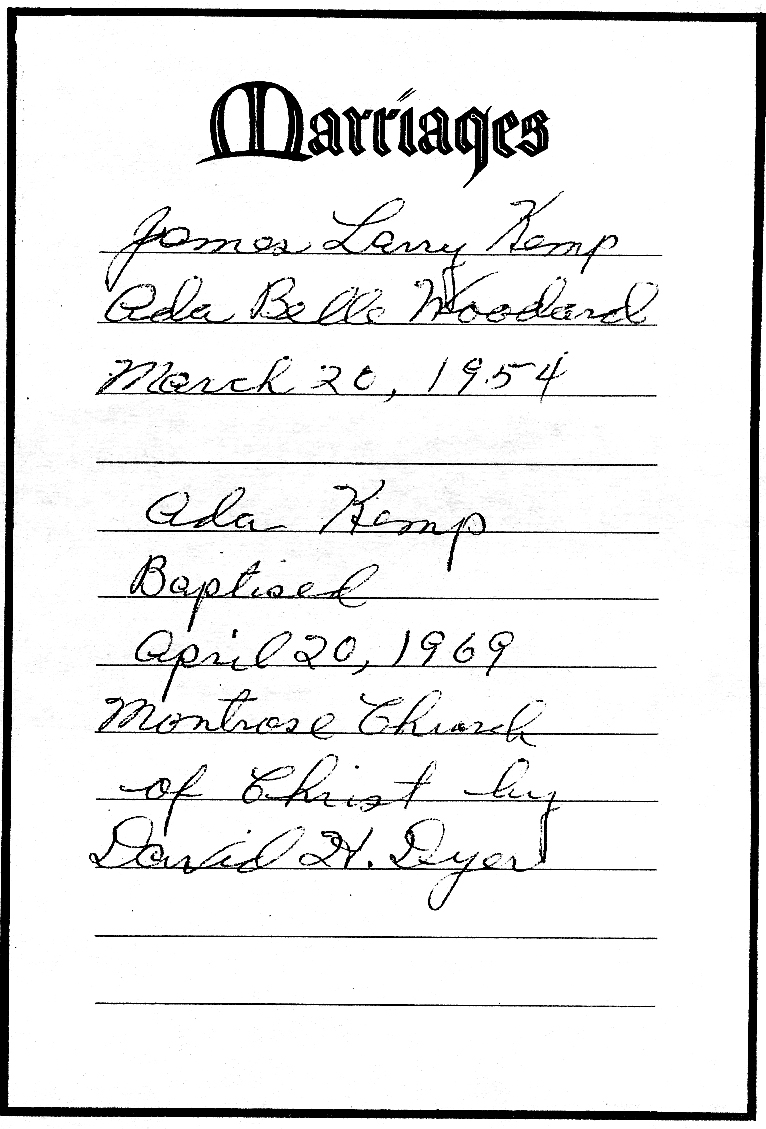 Marriages
James Larry Kemp
Ada Belle Woodard
March 20, 1954
Ada Kemp
Baptised
April 20, 1969
Montrose Church
of Christ by
David H. Dyer